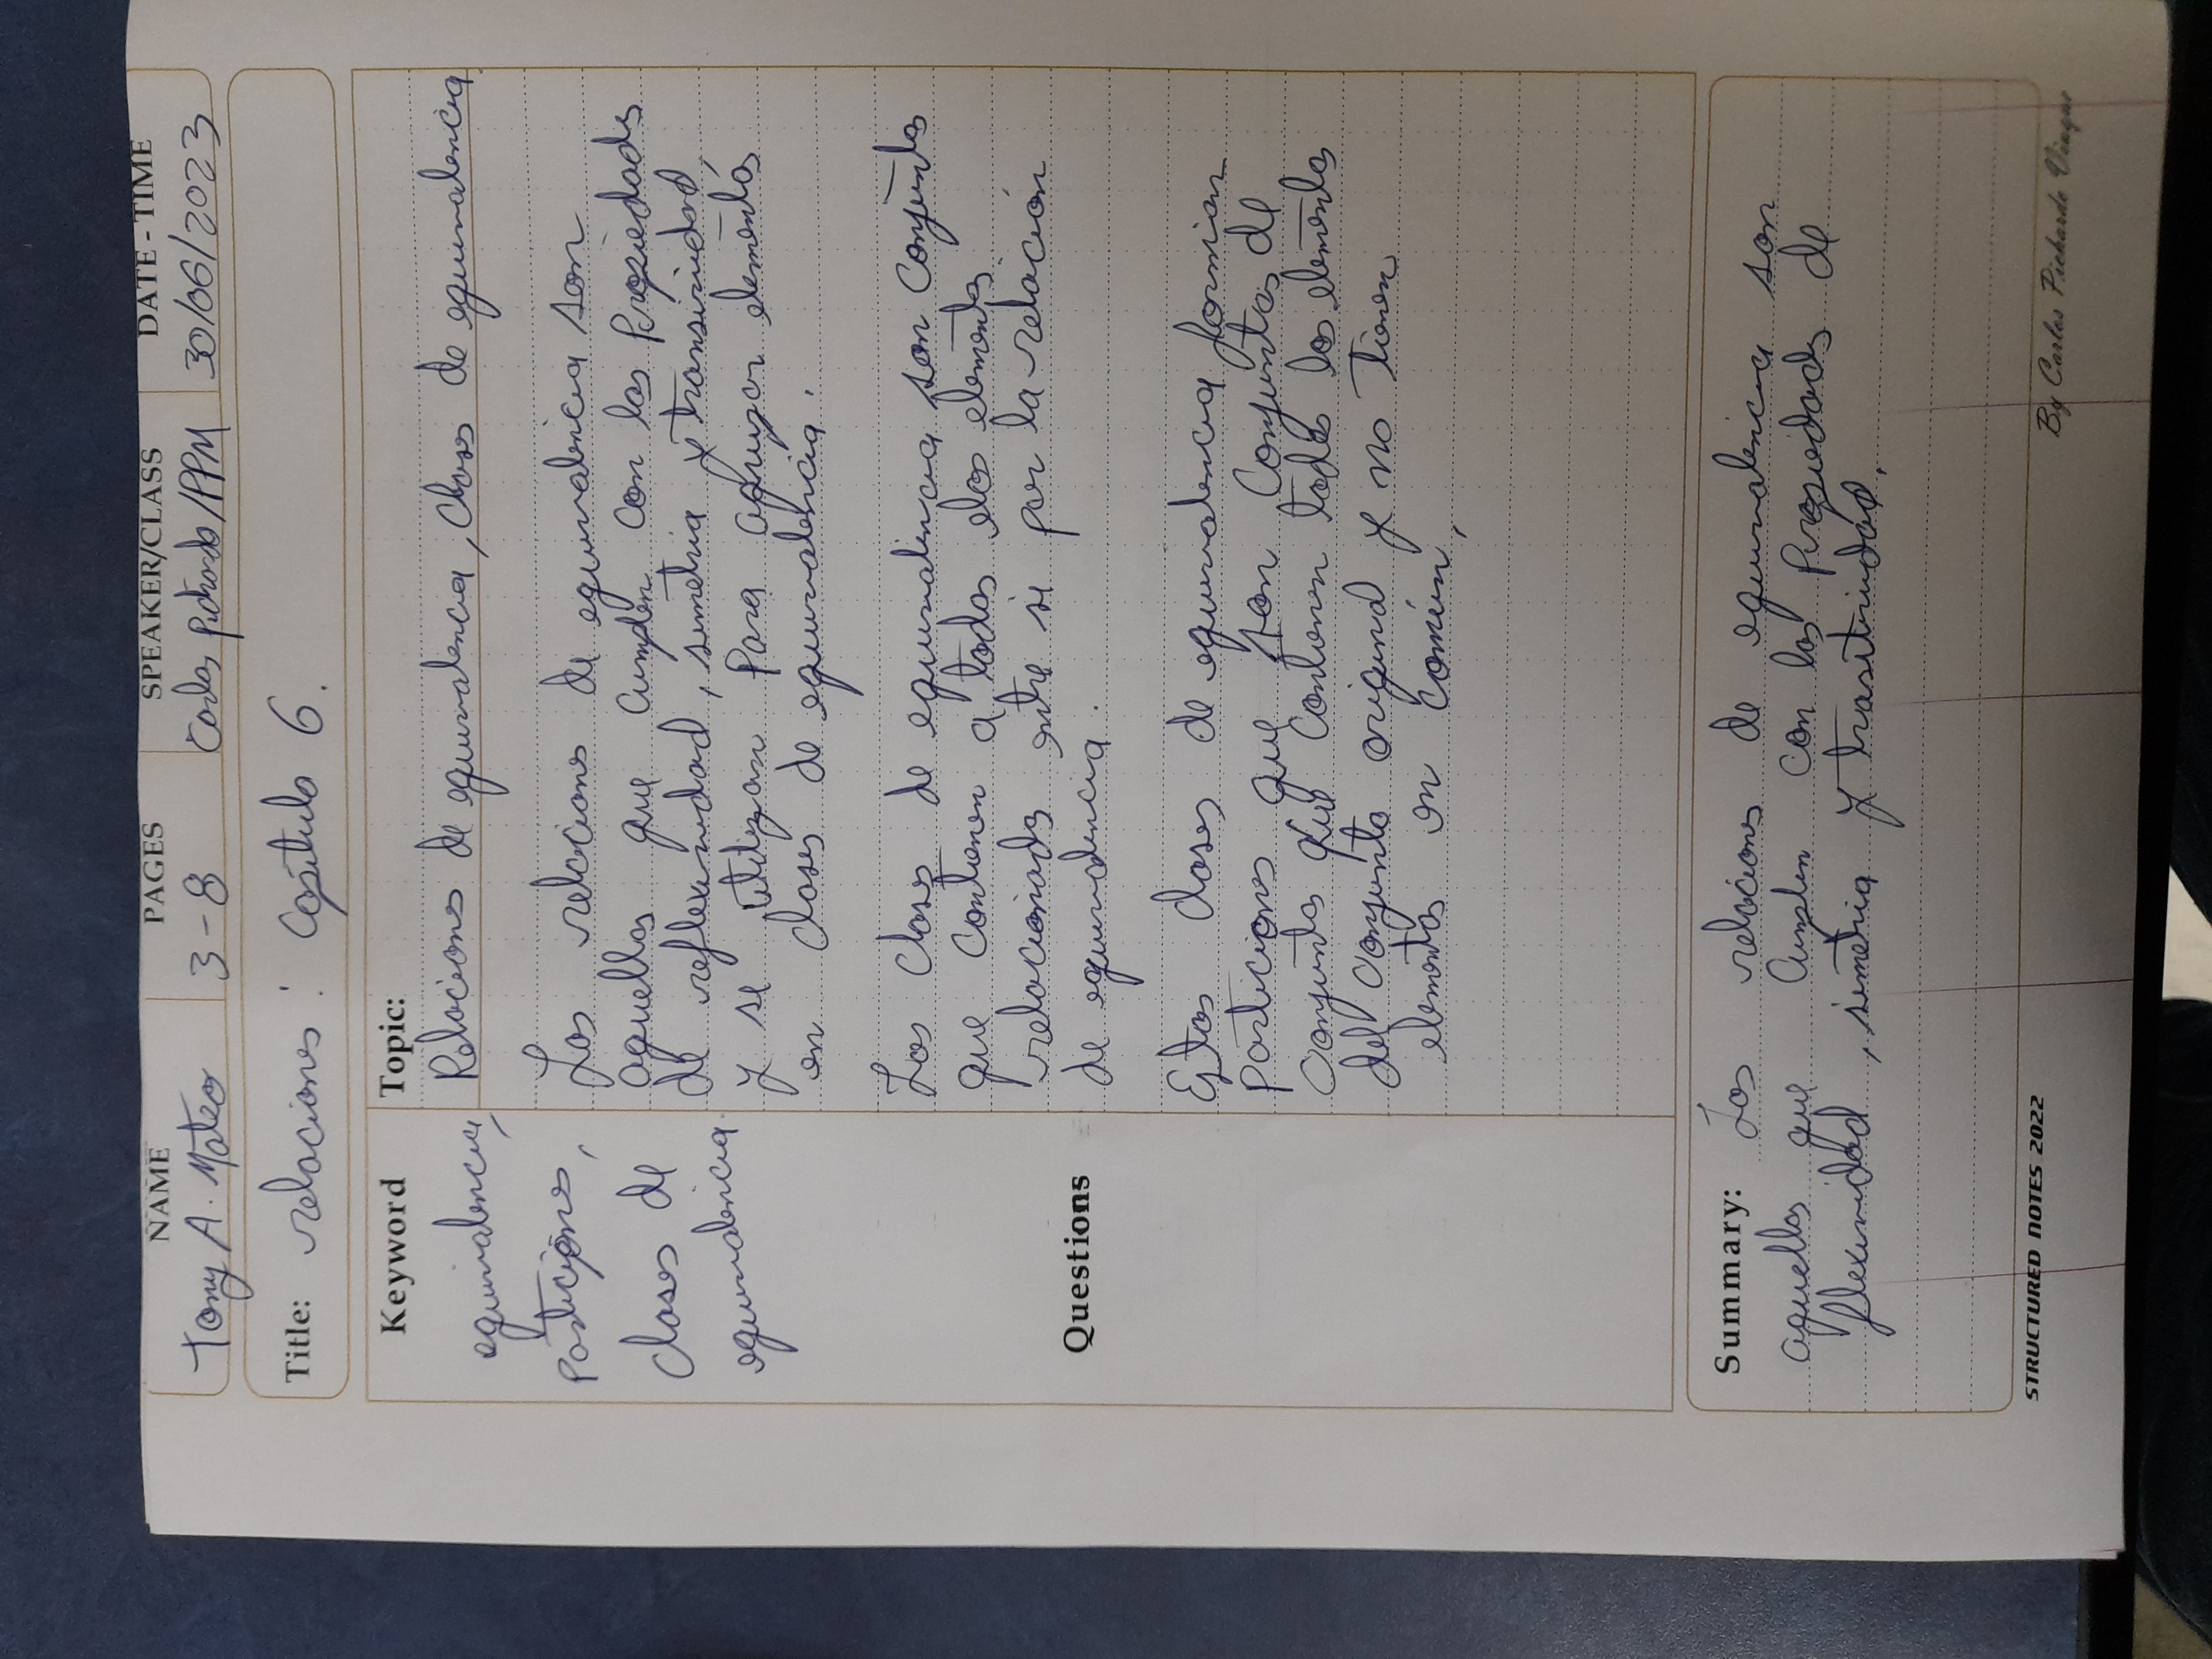 NAME PAGES SPEAKER/CLASS DATE - TIME
Tony A. Mateo 3-8 Carlos Pichardo /PPM 30/06/2023
Title: relaciones : Capitulo 6.
Keyword
equivalencia,
Particiones,
clases de
equivalencia.
Questions
Topic:
Relaciones de equivalencia, Clases de equivalencia
Las relaciones de equivalencia son
aquellas que cumplen con las Propiedades
de reflexividad, simetria y transividad,
y se utilizan para agrupar elementos
en clases de equivalencia.
Las clases de equivalencia son conjuntos
que contienen a todos elos elementos
relacionados entre si por la relación
de equivalencia.
Estas clases de equivalencia forman
particiones que son conjuntos de
conjuntos que contienen todos los elementos
del conjunto original y no tienen
elementos en común,
Summary: Las relaciones de equivalencia son
aquellas que cumplen con las Propiedades de
flexividad, simetria y trasitividad.
STRUCTURED NOTES 2022
By Carlos Pichardo Viuque